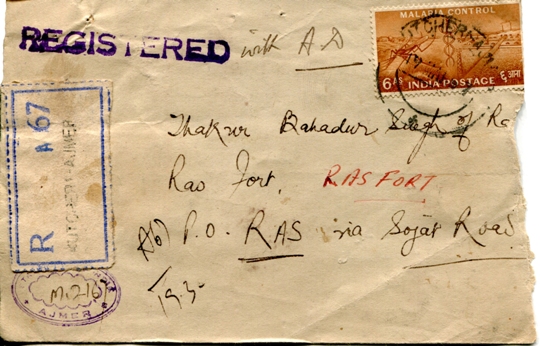 REGISTERED with A D
MALARIA CONTROL
6 AS INDIA POSTAGE ६ आना
R KUTCHERY AJMER
A 67
Thakur Bahadur Singh of Ra
Rao Fort, RAS FORT
P.O. RAS via Sojat Road
AJMER
19.5